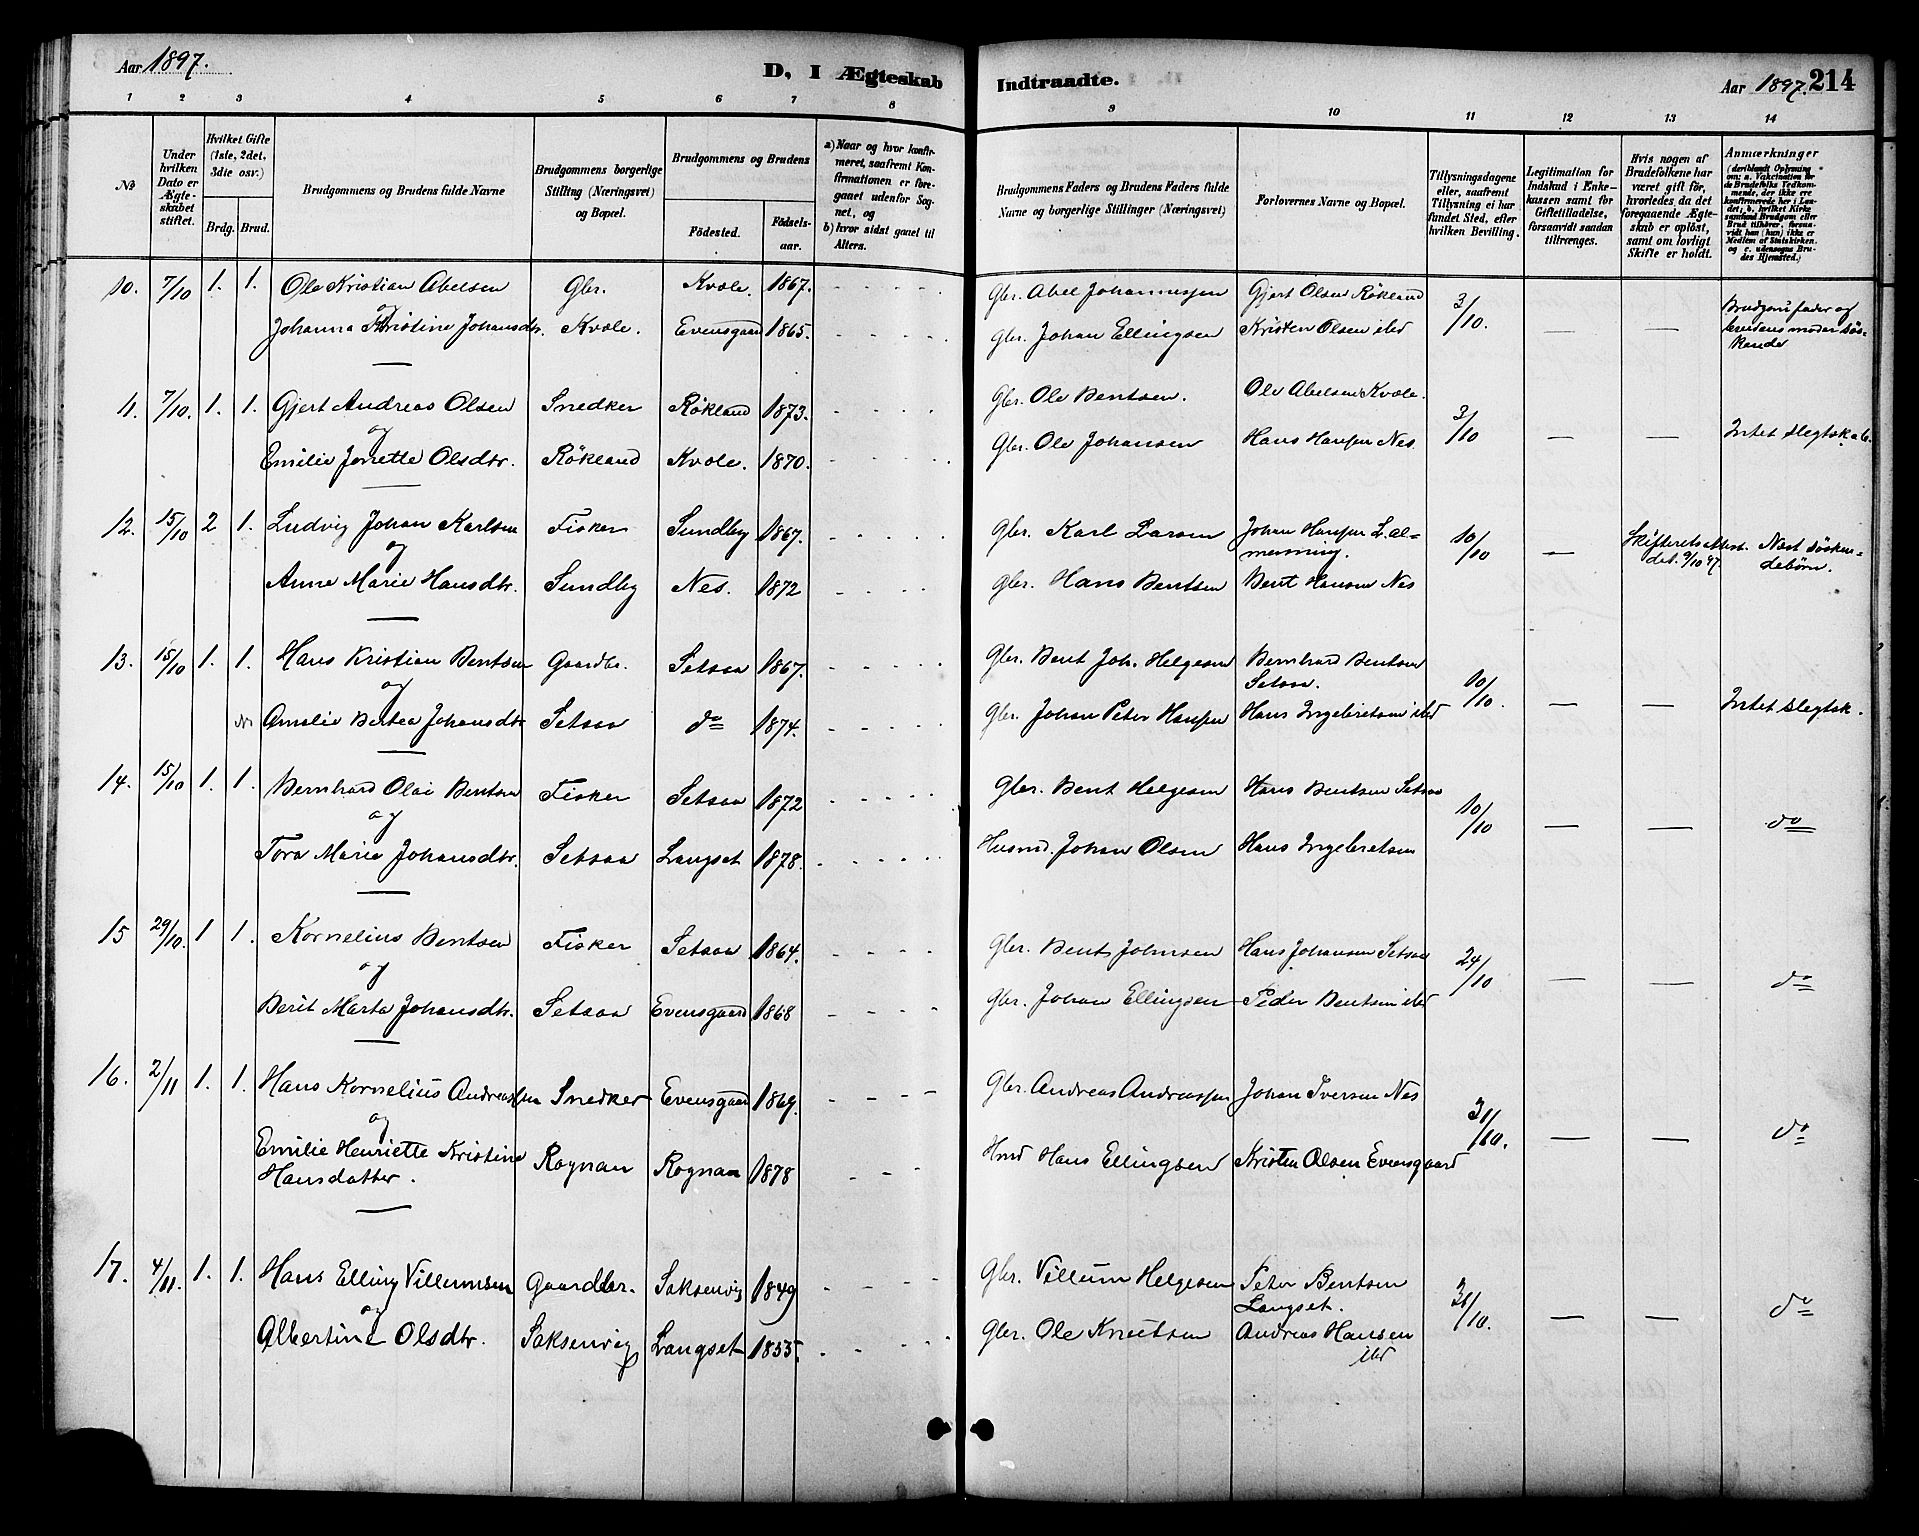 Aar 1897.
D, I Ægteskab
Indtraadte.
Aar 1897. 214
1 2 3 4 5 6 7 8 9 10 11 12 13 14
No
Under hvilken Dato er Ægteskabet stiftet.
Hvilket Gifte (1ste, 2det, 3die osv.)
Brdg. Brud.
Brudgommens og Brudens fulde Navne
Brudgommens borgerlige Stilling (Næringsvei) og Bopæl.
Brudgommens og Brudens
Födested. Födselsaar.
a) Naar og hvor konfirmeret, saafremt Konfirmationen er foregaaet udenfor Sognet, og
b) hvor sidst gaaet til Alters.
Brudgommens Faders og Brudens Faders fulde Navne og borgerlige Stillinger (Næringsvei)
Forlovernes Navne og Bopæl.
Tillysningsdagene eller, saafremt Tillysning ei har fundet Sted, efter hvilken Bevilling.
Legitimation for Indskud i Enkekassen samt for Giftetilladelse, forsaavidt saadan tiltrænges.
Hvis nogen af Brudefolkene har været gift för, hvorledes da det foregaaende Ægteskab er oplöst, samt om lovligt Skifte er holdt.
Anmærkninger (deriblandt Oplysning om: a. Vakcination for de Brudefolks Vedkommende, der ikke ere konfirmerede her i Landet; b. hvilket Kirkesamfund Brudgom eller Brud tilhörer, forsaavidt han (hun) ikke er Medlem af Statskirken, og c. udensogns Brudes Hjemsted.)
10. 7/10 1. 1. Ole Kristian Abelsen Gbr. Kvæle. 1867. Gbr. Abel Johannesen Gjert Olsen Røkland 3/10. — — Brudgoms fader og brudens moder søskende
og
Johanna Kristine Johansdtr. Kvæle. Evensgaard 1865. Gbr. Johan Ellingsen Kristen Olsen ibd
11. 7/10. 1. 1. Gjert Andreas Olsen Snedker Røkland 1873. Gbr. Ole Bentsen. Ole Abelsen Kvæle. 3/10 — — Intet slegtskab.
og
Emilie Jonette Olsdtr. Røkland Kvæle. 1870. Gbr. Ole Johansen Hans Hansen Nes
12. 15/10 2 1. Ludvig Johan Karlsen Fisker Sundby 1867. Gbr. Karl Larsen Johan Hansen L.almenning. 10/10 — Skifteretsattest. dat. 9/10 97. Næst søskendebørn.
og
Anne Marie Hansdtr. Sundby Nes. 1872 Gbr. Hans Bentsen Bent Hansen Nes
13. 15/10 1. 1. Hans Kristian Bentsen Gaardbr. Setsaa 1867. Gbr. Bent Joh. Helgesen Bernhard Bentsen Setsaa. 10/10. — — Intet slegtsk.
og
Amalie Bertea Johansdtr Setsaa do 1874. Gbr. Johan Peter Hansen Hans Ingebretsen ibd
14. 15/10 1. 1. Bernhard Olai Bentsen Fisker Setsaa 1872 Gbr. Bent Helgesen Hans Bentsen Setsaa 10/10 — — do
og
Tora Marie Johansdtr. Setsaa Langset 1878. Husmd. Johan Olsen Hans Ingebretsen
15 29/10. 1 1. Kornelius Bentsen Fisker Setsaa 1864. Gbr. Bent Johnsen Hans Johansen Setsaa 24/10 — — do
og
Berit Marta Johansdtr. Setsaa Evensgaard 1868 Gbr. Johan Ellingsen Peder Bentsen ibd
16. 2/11 1. 1. Hans Kornelius Andreassen Snedker Evensgaard 1869. Gbr. Andreas Andreassen Johan Iversen Nes 31/10. — — do
og
Emilie Henriette Kristine Hansdatter. Rognan Rognan 1878 Hmd Hans Ellingsen Kristen Olsen Evensgaard
17. 4/11. 1. 1. Hans Elling Villumsen Gaardbr. Saksenvig 1849 Gbr. Villum Helgesen Peter Bentsen Langset. 31/10. — — do
og
Albertine Olsdtr. Saksenvig Langset 1855. Gbr. Ole Knutsen Andreas Hansen ibd